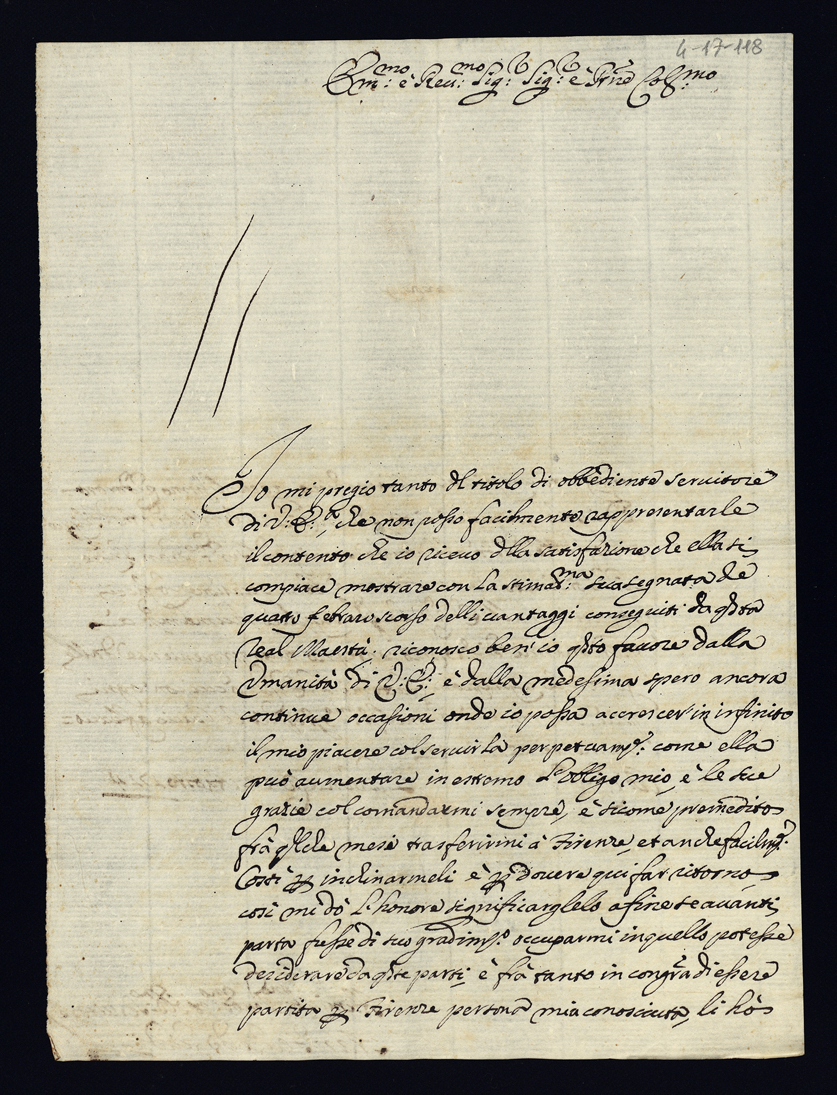 4-17-118
Em:mo è Rev:mo Sig:r Sig:r è Prne Col:mo
Io mi pregio tanto del titolo di obbediente servitore
di V: E:za, che non posso facilmente rappresentarle
il contento che io ricevo della satisfazione che ella si
compiace mostrare con la stimat:ma sua segnata de
quatto febraro scorso delli vantaggi conseguiti da qsta
Real Maestà. riconosco ben' io qsto favore dalla
Vmanità di V: E:, è dalla medesima spero ancora
continue occasioni onde io possa accrescer in infinito
il mio piacere col servirLa perpetuamte: come ella
può aumentare in estremo L'obligo mio, è le sue
grazie col comandarmi sempre, è sicome premedito
frà qlche mese trasferirmi à Firenze, et anche facilmte:
Costì p inchinarmeli è p dovere qui far ritorno
così mi dò L'honore significarglelo afine se avanti
parta fusse di suo gradimto: occuparmi in quello potesse
desiderare da qste parti, è frà tanto in congra di essere
partita p Firenze persona mia conosciuta, li hò